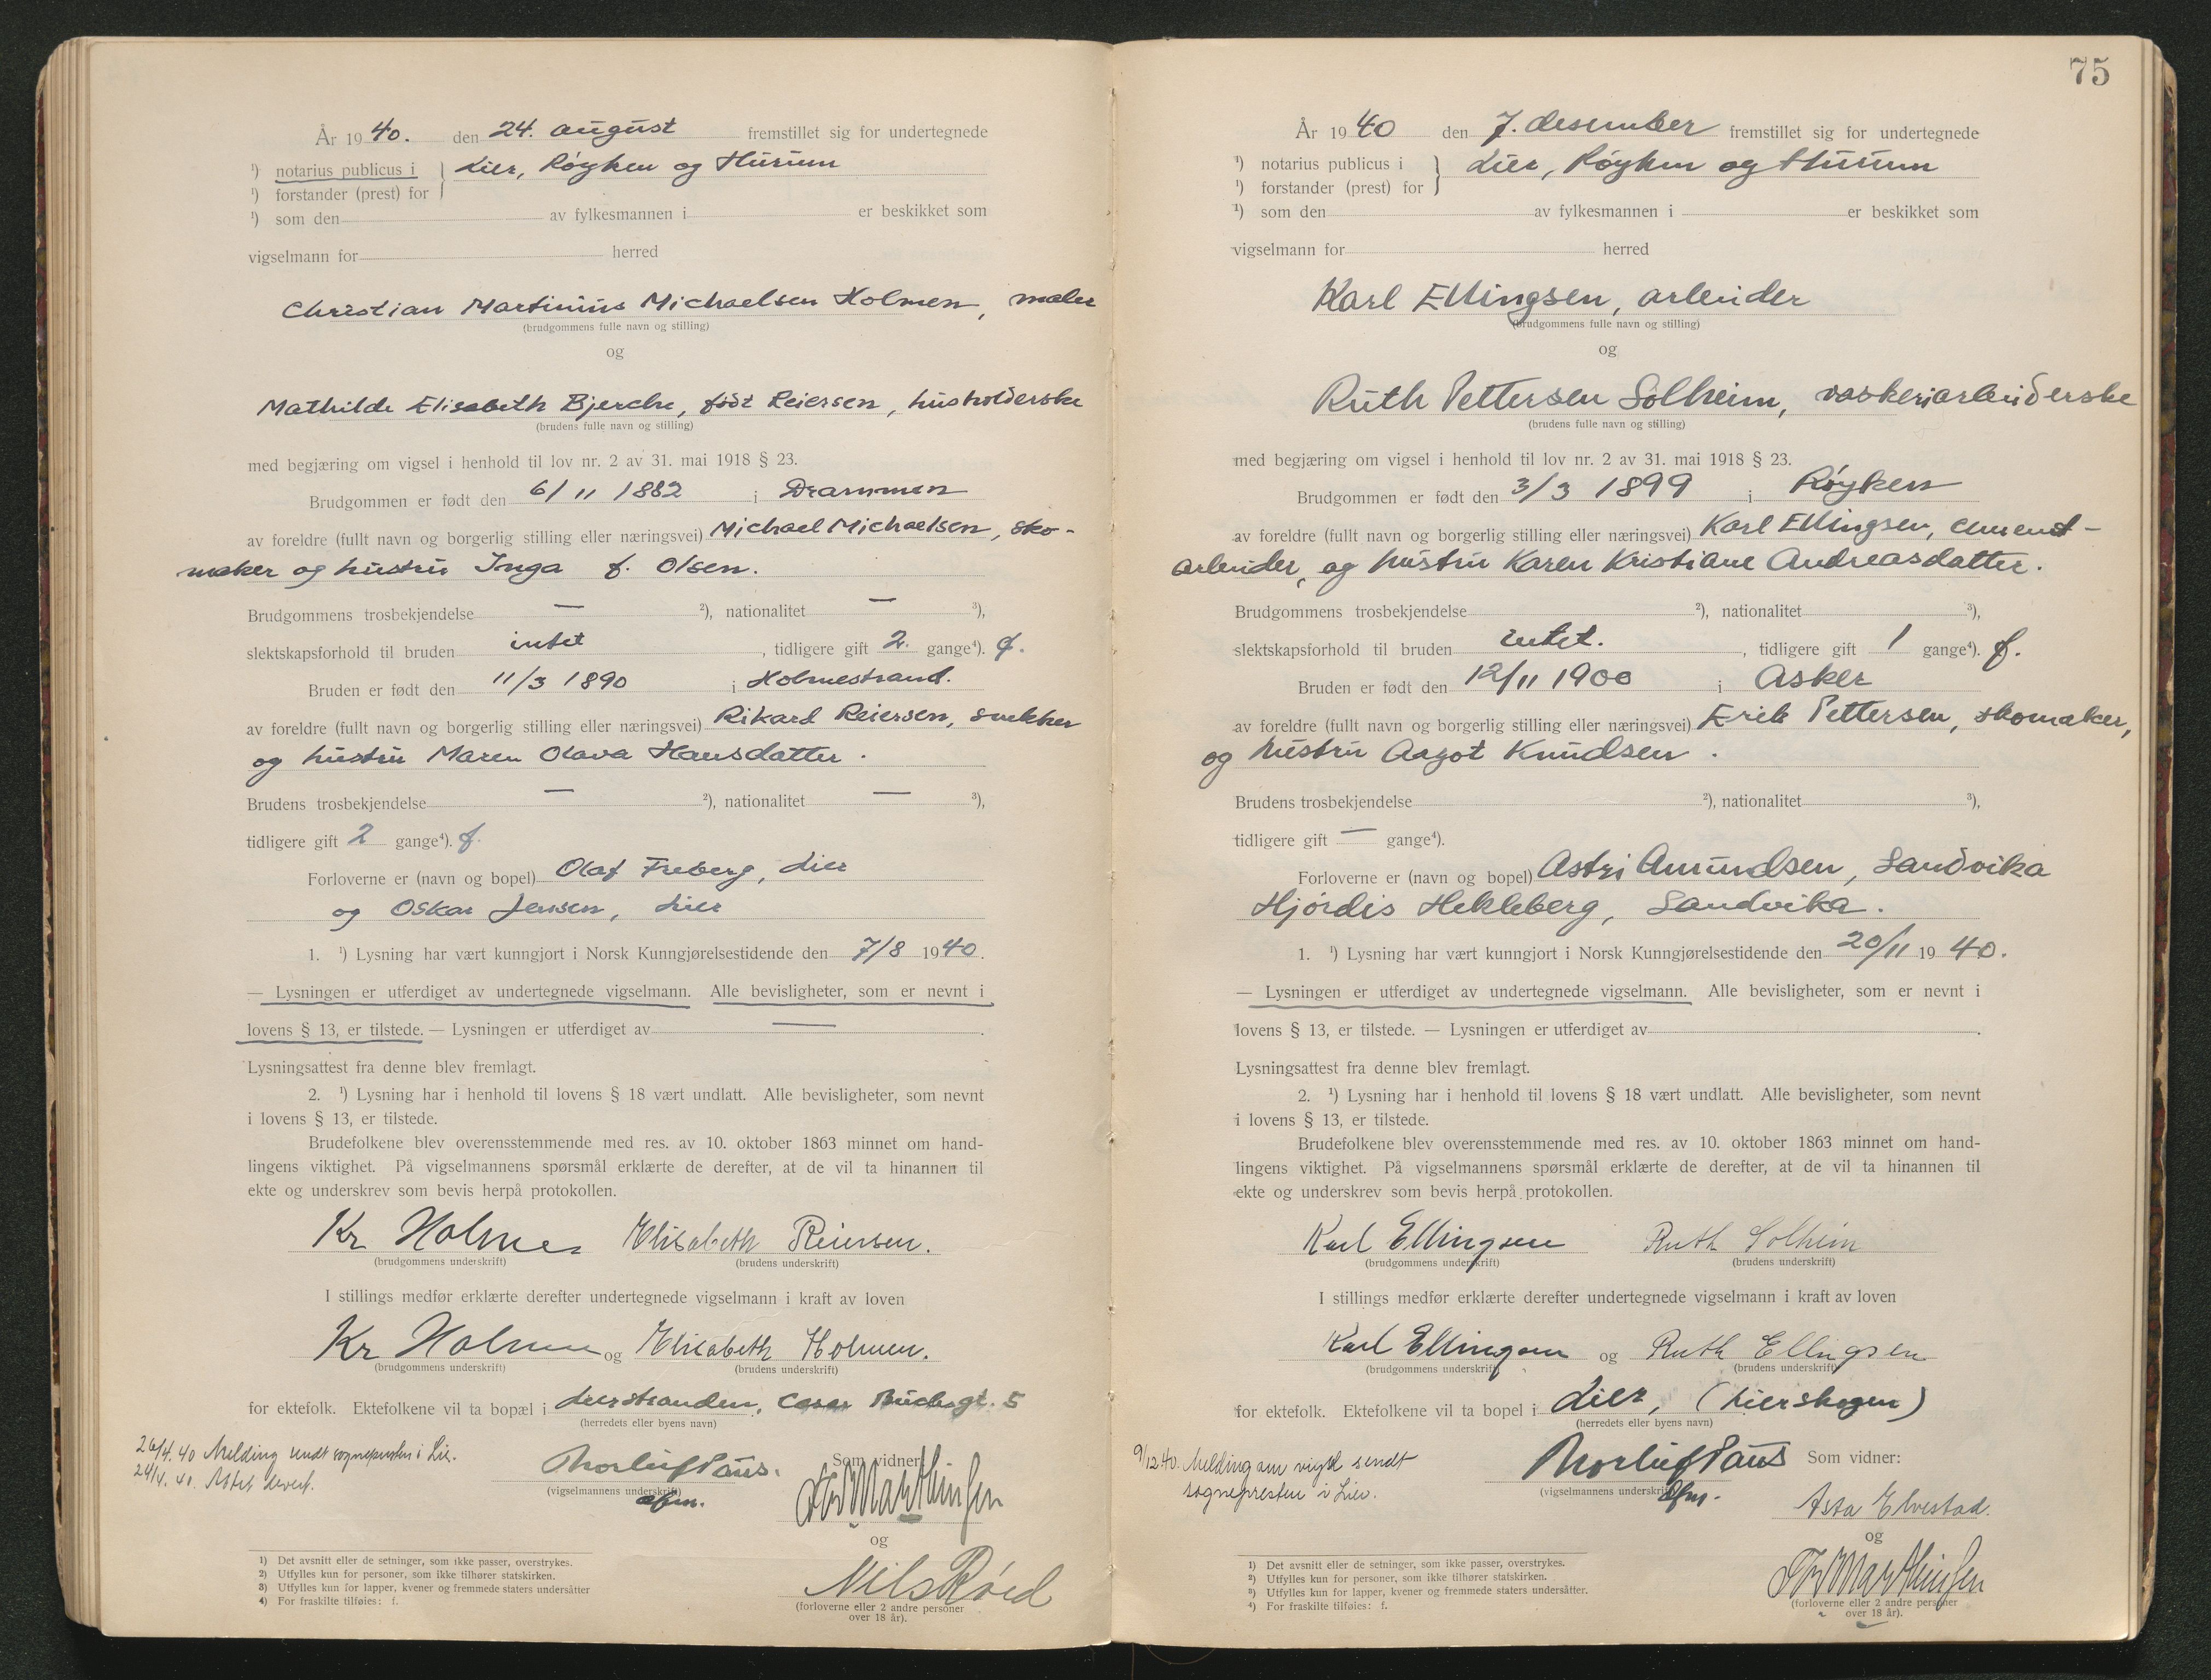 År 19 40. den 24. august fremstillet sig for undertegnede
¹) notarius publicus i } Lier, Røyken og Hurum
¹) forstander (prest) for
¹) som den av fylkesmannen i er beskikket som
vigselmann for herred
Christian Martinius Michaelsen Holmen, maler
(brudgommens fulle navn og stilling)
og
Mathilde Elisabeth Bjerche, født Reiersen, husholderske
(brudens fulle navn og stilling)
med begjæring om vigsel i henhold til lov nr. 2 av 31. mai 1918 § 23.
Brudgommen er født den 6/11 1882 i Drammen
av foreldre (fullt navn og borgerlig stilling eller næringsvei) Michael Michaelsen, sko-
maker og hustru Inga f. Olsen.
Brudgommens trosbekjendelse — ²), nationalitet — ³),
slektskapsforhold til bruden intet, tidligere gift 2. gange⁴). f.
Bruden er født den 11/3 1890 i Holmestrand.
av foreldre (fullt navn og borgerlig stilling eller næringsvei) Rikard Reiersen, snekker
og hustru Maren Olava Hansdatter.
Brudens trosbekjendelse — ²), nationalitet — ³),
tidligere gift 2 gange⁴). f.
Forloverne er (navn og bopel) Olaf Freberg, Lier
og Oskar Jensen, Lier
1. ¹) Lysning har vært kunngjort i Norsk Kunngjørelsestidende den 7/8 1940.
— Lysningen er utferdiget av undertegnede vigselmann. Alle bevisligheter, som er nevnt i
lovens § 13, er tilstede. — Lysningen er utferdiget av — .
Lysningsattest fra denne blev fremlagt.
2. ¹) Lysning har i henhold til lovens § 18 vært undlatt. Alle bevisligheter, som nevnt
i lovens § 13, er tilstede.
Brudefolkene blev overensstemmende med res. av 10. oktober 1863 minnet om hand-
lingens viktighet. På vigselmannens spørsmål erklærte de derefter, at de vil ta hinannen til
ekte og underskrev som bevis herpå protokollen.
Kr Holmen Elisabeth Reiersen.
(brudgommens underskrift) (brudens underskrift)
I stillings medfør erklærte derefter undertegnede vigselmann i kraft av loven
Kr Holmen og Elisabeth Holmen.
(brudgommens underskrift) (brudens underskrift)
for ektefolk. Ektefolkene vil ta bopæl i Lierstranden, Cesar Buchsgt. 5
(herredets eller byens navn)
26/4.40 Melding sendt sognepresten i Lier.
24/4. 40. Attest levert.
Thorleif Paus.
(vigselmannens underskrift)
Som vidner:
Marthinsen
og
Nils Røed
(forloverne eller 2 andre personer
over 18 år).
1) Det avsnitt eller de setninger, som ikke passer, overstrykes.
2) Utfylles kun for personer, som ikke tilhører statskirken.
3) Utfylles kun for lapper, kvener og fremmede staters undersåtter
4) For fraskilte tilføies: f.
75
År 19 40 den 7. desember fremstillet sig for undertegnede
¹) notarius publicus i } Lier, Røyken og Hurum
¹) forstander (prest) for
¹) som den av fylkesmannen i er beskikket som
vigselmann for herred
Karl Ellingsen, arbeider
(brudgommens fulle navn og stilling)
og
Ruth Pettersen Solheim, vaskeriarbeiderske
(brudens fulle navn og stilling)
med begjæring om vigsel i henhold til lov nr. 2 av 31. mai 1918 § 23.
Brudgommen er født den 3/3 1899 i Røyken
av foreldre (fullt navn og borgerlig stilling eller næringsvei) Karl Ellingsen, cement-
arbeider, og hustru Karen Kristiane Andreasdatter.
Brudgommens trosbekjendelse ²), nationalitet ³),
slektskapsforhold til bruden intet., tidligere gift 1 gange⁴). f.
Bruden er født den 12/11 1900 i Asker
av foreldre (fullt navn og borgerlig stilling eller næringsvei) Erik Pettersen, skomaker,
og hustru Aagot Knudsen.
Brudens trosbekjendelse ²), nationalitet ³),
tidligere gift — gange⁴).
Forloverne er (navn og bopel) Astri Amundsen, Sandvika
Hjørdis Hekleberg, Sandvika.
1. ¹) Lysning har vært kunngjort i Norsk Kunngjørelsestidende den 20/11 19 40.
— Lysningen er utferdiget av undertegnede vigselmann. Alle bevisligheter, som er nevnt i
lovens § 13, er tilstede. — Lysningen er utferdiget av .
Lysningsattest fra denne blev fremlagt.
2. ¹) Lysning har i henhold til lovens § 18 vært undlatt. Alle bevisligheter, som nevnt
i lovens § 13, er tilstede.
Brudefolkene blev overensstemmende med res. av 10. oktober 1863 minnet om hand-
lingens viktighet. På vigselmannens spørsmål erklærte de derefter, at de vil ta hinannen til
ekte og underskrev som bevis herpå protokollen.
Karl Ellingsen Ruth Solheim
(brudgommens underskrift) (brudens underskrift)
I stillings medfør erklærte derefter undertegnede vigselmann i kraft av loven
Karl Ellingsen og Ruth Ellingsen
(brudgommens underskrift) (brudens underskrift)
for ektefolk. Ektefolkene vil ta bopel i Lier, (Lierskogen)
(herredets eller byens navn)
9/12 40. Melding om vigsel sendt
sognepresten i Lier.
Thorleif Paus
(vigselmannens underskrift)
Som vidner:
Asta Elvestad.
og
Marthinsen
(forloverne eller 2 andre personer
over 18 år).
1) Det avsnitt eller de setninger, som ikke passer, overstrykes.
2) Utfylles kun for personer, som ikke tilhører statskirken.
3) Utfylles kun for lapper, kvener og fremmede staters undersåtter.
4) For fraskilte tilføies: f.